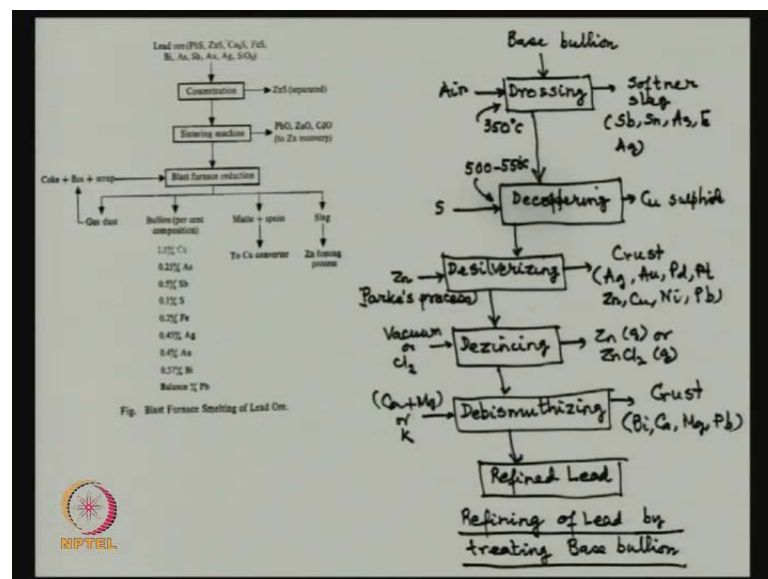 Lead ore (PbS, ZnS, Cu₂S, FeS,
Bi, As, Sb, Au, Ag, SiO₂)
Concentration
ZnS (separated)
Sintering machine
PbO, ZnO, CdO
(to Zn recovery)
Coke + flux + scrap
Blast furnace reduction
Gas dust
Bullion (per cent
composition)
Matte + speiss
Slag
1.0% Cu
0.25% As
0.5% Sb
0.1% S
0.2% Fe
0.45% Ag
0.4% Au
0.57% Bi
Balance % Pb
To Cu converter
Zn fuming
process
Fig. Blast Furnace Smelting of Lead Ore.
Base bullion
Air
Drossing
Softner
slag
(Sb, Sn, As, &
Ag)
350°C
500-55°C
S
Decoppering
Cu sulphide
Zn
Parke's process)
Desilverizing
Crust
(Ag, Au, Pd, Pt
Zn, Cu, Ni, Pb)
Vacuum
or
Cl₂
Dezincing
Zn (g) or
ZnCl₂ (g)
(Ca+Mg)
or
K
Debismuthizing
Crust
(Bi, Ca, Mg, Pb)
Refined Lead
Refining of Lead by
treating Base bullion
NPTEL